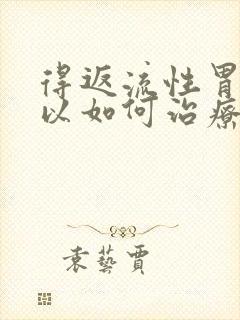 得返流性胃
以如何治療
袁藝賈